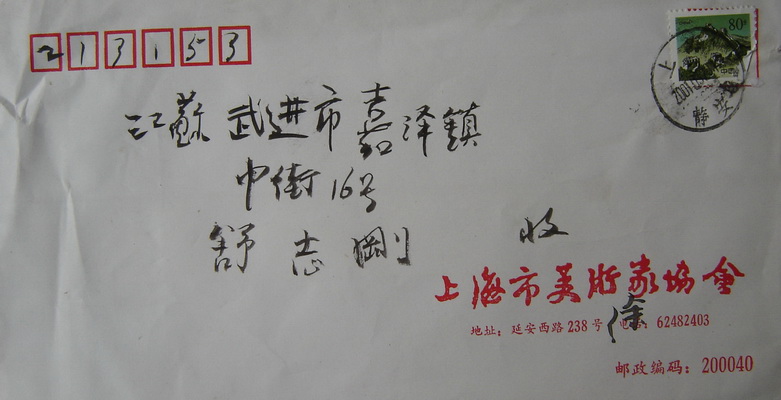 213153
80分
上
2001
静安
江蘇 武进市嘉泽鎮
中街16号
舒志剛 收
上海市美術家協會
徐
地址：延安西路238号 电话：62482403
邮政编码：200040